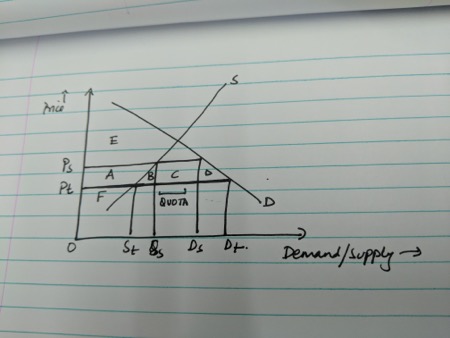 S
Price ↑
E
Ps A B C D
Pt F QUOTA D
O St Qs Ds Dt.
Demand/Supply →